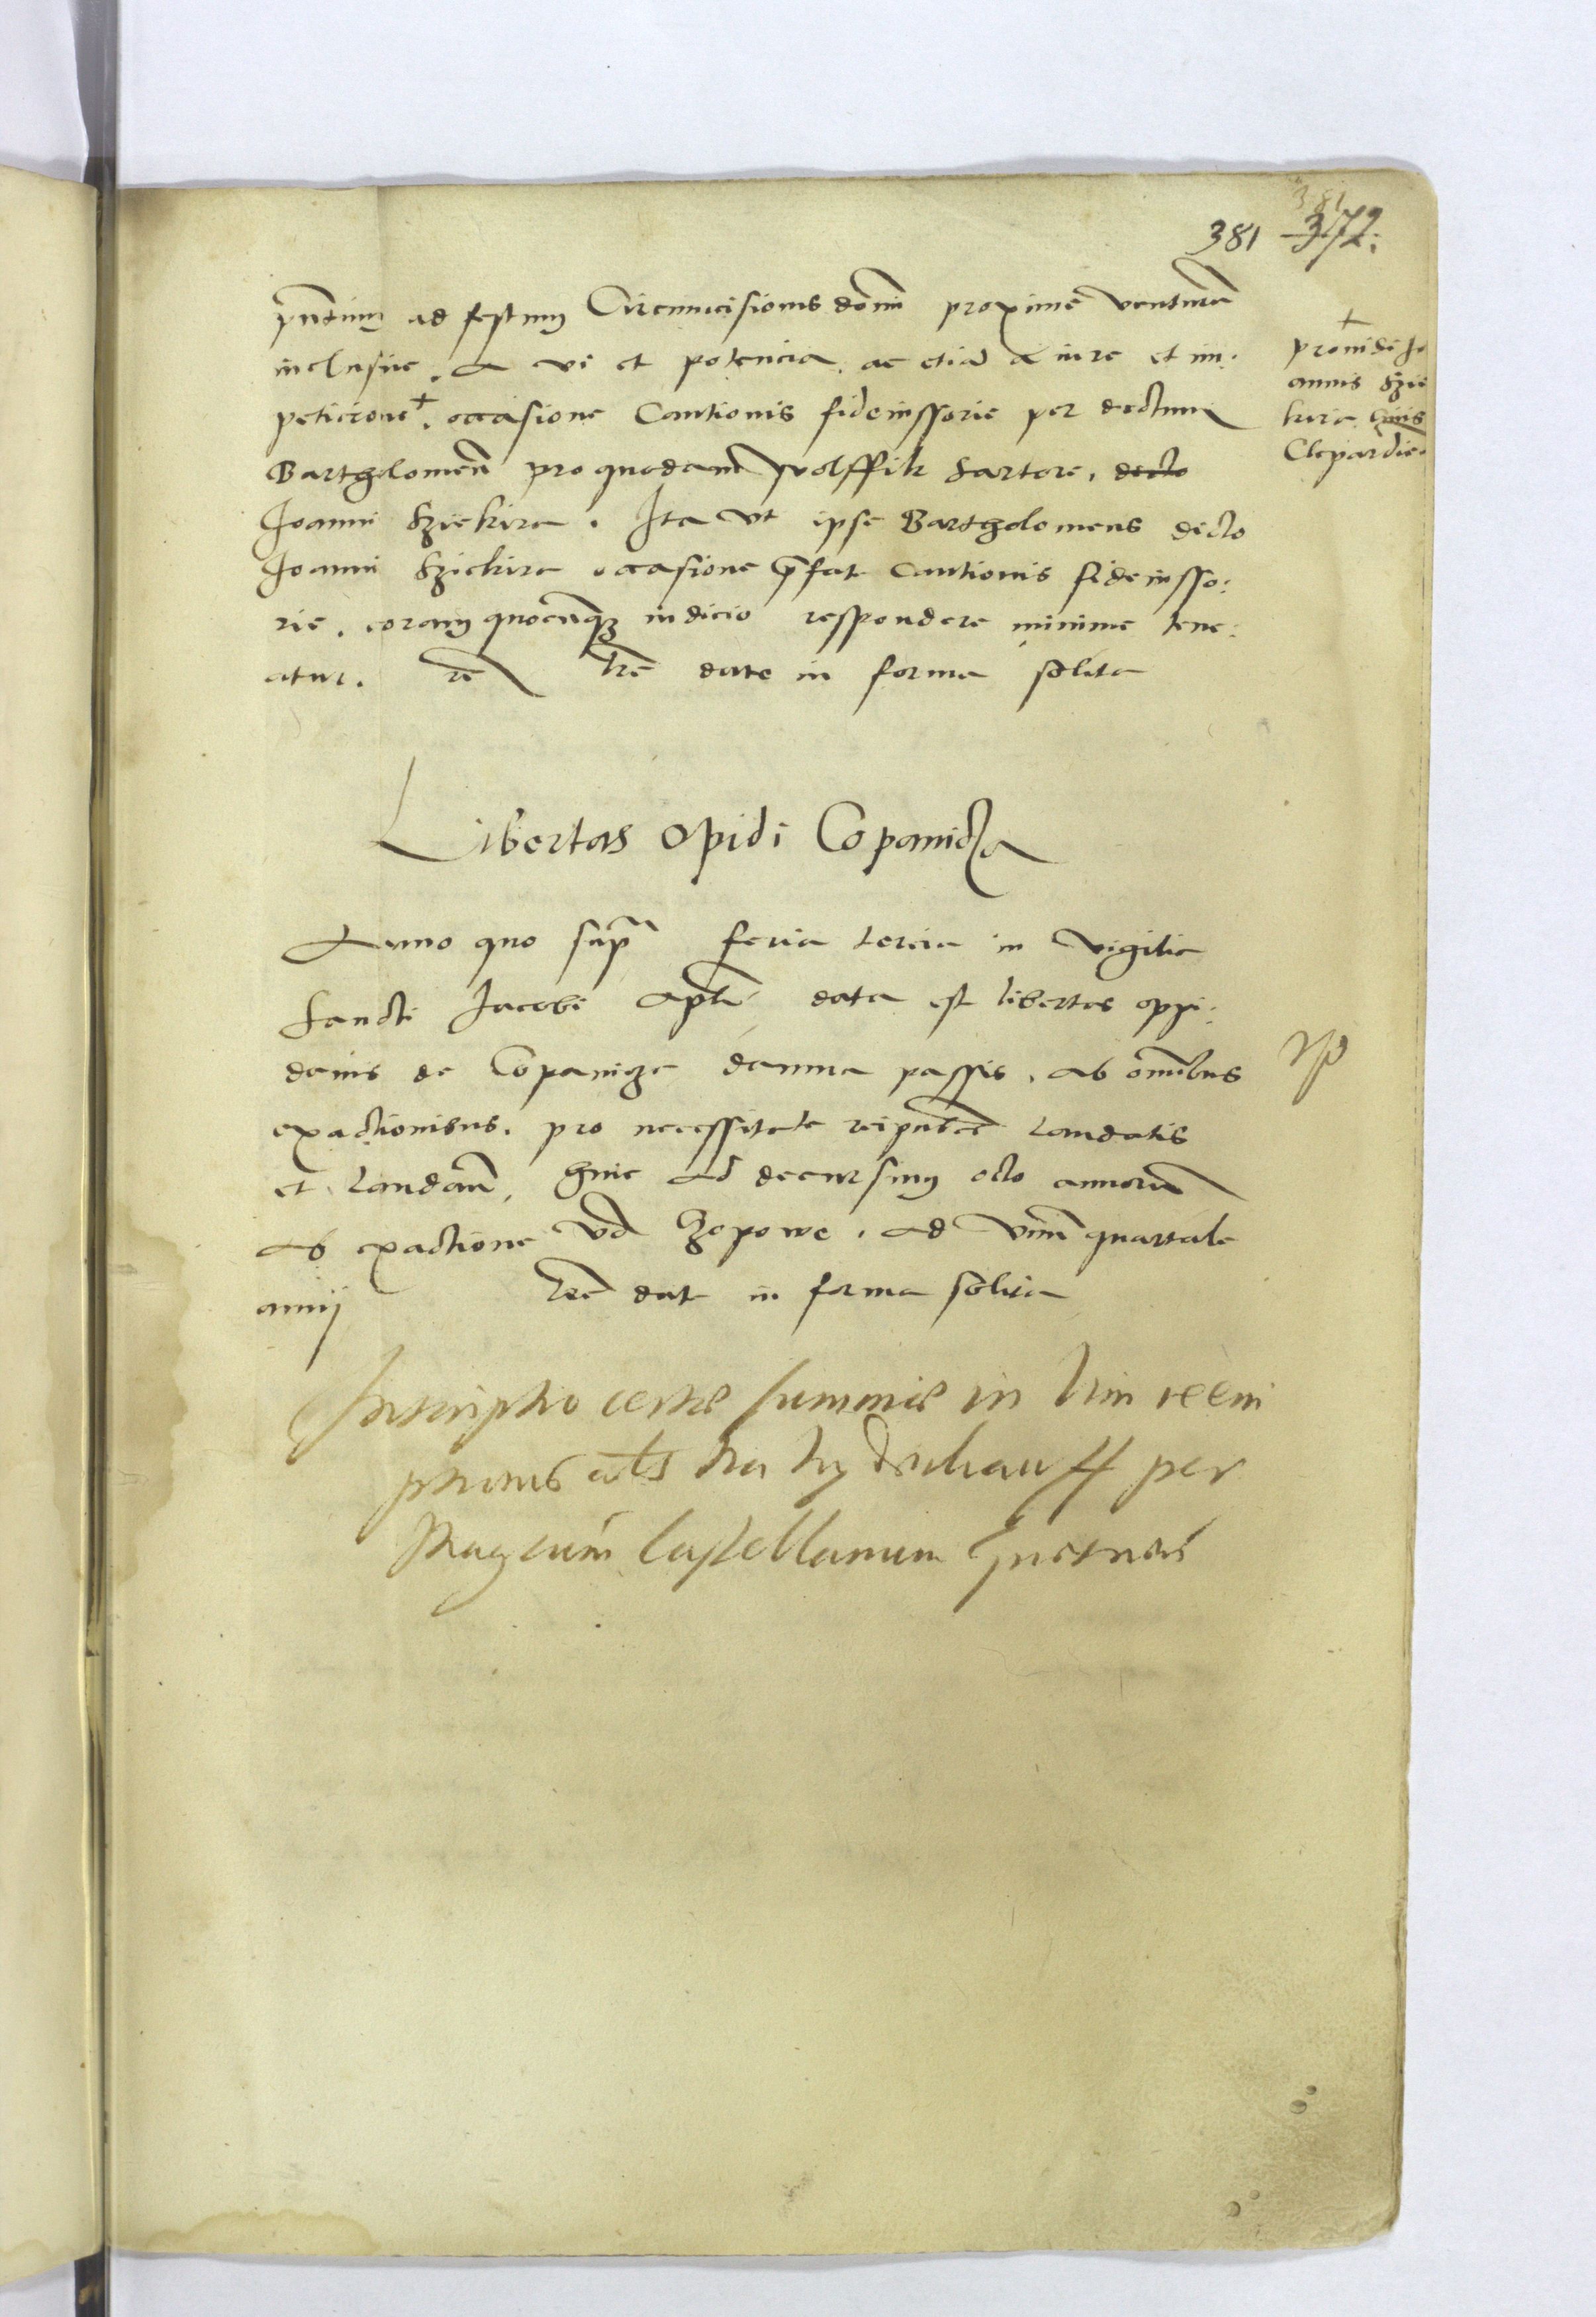 381
381 372.
pntium ad festum Circumcisionis domi proxime venturum
inclusive. a vi et potencia. ac etia a iure et im:
peticione +. occasione Cautionis fideiussorie per dictum
Bartholomeu pro quodam Wolffik sartore. dicto
Joanni Sziekira. Ita vt ipse Bartholomeus dicto
Joanni Sziekira occasione pfate Cautionis fideiusso:
rie. coram quocunqz iudicio respondere minime tene:
atur. rc lre date in forma solita
+
prouidi Jo
annis Szie
kira ciuis
Clepardie.
Libertas Opidi Copanicza
Anno quo sup feria tercia in vigilia
sancti Jacobi apli data est libertas oppi:
danis de Copanicza damna passis. ab omibus
exactionibus. pro necessitate reipublce laudatis
et laudan. hinc ad decursum octo annorum
ab exactione vo Czopowe. ad vnu quartale
annij lre dat in forma solita
Inscriptio certae summae in vim reem
ptionis als per
Magcum Castellanum Gnesnen